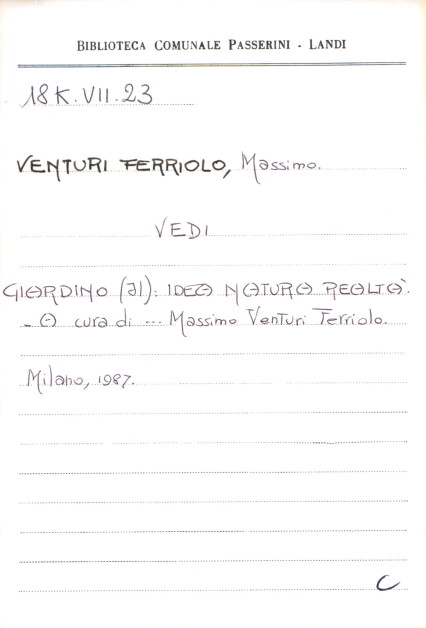 BIBLIOTECA COMUNALE PASSERINI - LANDI
18 K. VII. 23
VENTURI FERRIOLO, Massimo.
VEDI
GIARDINO (Il): IDEA NATURA REALTÀ.
- A cura di ... Massimo Venturi Ferriolo.
Milano, 1987.
C